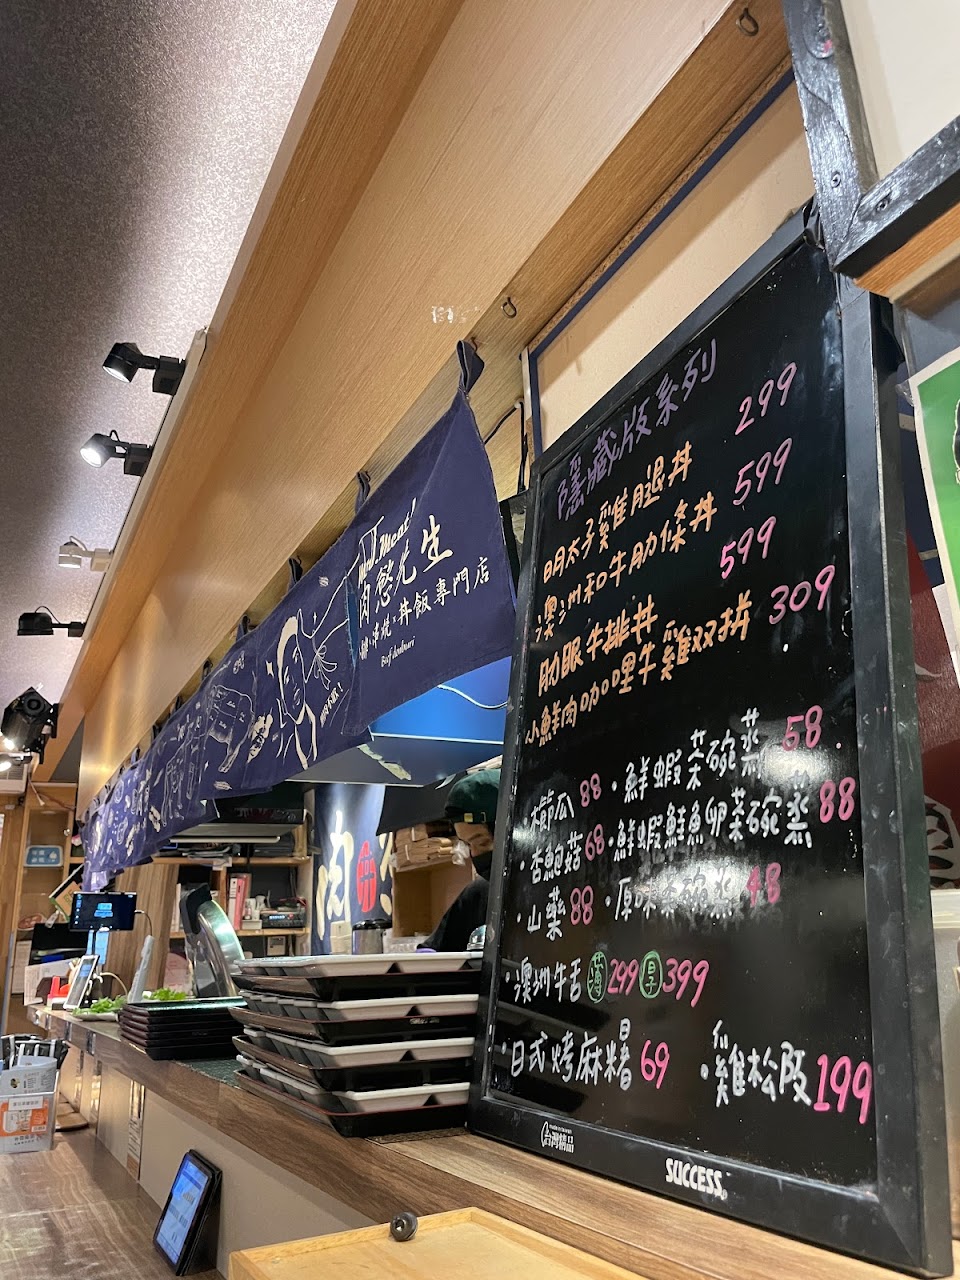 隱藏版系列
明太子雞腿丼 299
澳洲和牛肋條丼 599
肋眼牛排丼 599
小鮮肉咖哩牛雞双拼 309
·櫛瓜 88 ·鮮蝦茶碗蒸 58
·杏鮑菇 68 ·鮮蝦鮭魚卵茶碗蒸 88
·山藥 88 ·原味茶碗蒸 48
·澳洲牛舌 薄 299 厚 399
·日式烤麻糬 69 ·雞松阪 199
台灣精品
SUCCESS
Mr. Meat!
肉慾先生
串燒×丼飯專門店
Beef donburi
肉